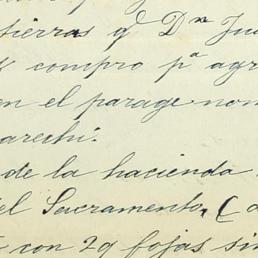 tierras q̃ Dⁿ Jua
compro pª agr
en el parage nom
arechi.
de la hacienda
del Sacramento, (
con 29 fojas sin